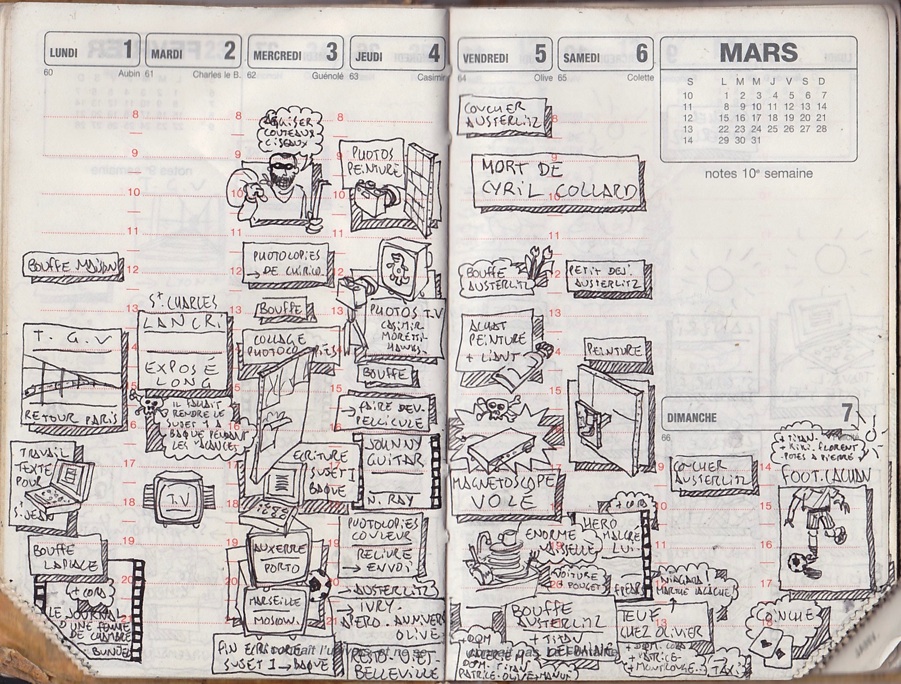 LUNDI 1
60 Aubin
8
9
10
11
BOUFFE MAISON 12
13
T.G.V
RETOUR PARIS
TRAVAIL
TEXTE
POUR
St JEAN
BOUFFE
LAPLACE
+ CORA
LE JOURNAL
D'UNE FEMME
DE CHAMBRE
BUNUEL
MARDI 2
61 Charles le B.
8
9
10
11
12
St CHARLES
LANCRI
EXPOSÉ
LONG
IL FALLAIT
RENDRE LE
SUJET 1 A
BAQUE PENDANT
LES VACANCES
T.V
MERCREDI 3
62 Guénolé
AIGUISER
COUTEAUX
CISEAUX
PHOTOCOPIES
→ DE CHIRICO
BOUFFE
COLLAGE
PHOTOCOPIES
ECRITURE
SUJET 1
BAQUE
AUXERRE
PORTO
MARSEILLE
MOSCOU
FIN ECRITURE
SUJET 1 → BAQUE
JEUDI 4
63 Casimir
PHOTOS
PEINTURE
PHOTOS T.V
CASIMIR
MORETTI
HAWKS
BOUFFE
→ FAIRE DEV.
PELLICULE
JOHNNY
GUITAR
N. RAY
PHOTOCOPIES
COULEUR
RELIURE
→ ENVOI
→ AUSTERLITZ
→ IVRY.
APERO. ANNIVERS
OLIVE
RESTO VIET
BELLEVILLE
VENDREDI 5
64 Olive
COUCHER
AUSTERLITZ
MORT DE
CYRIL COLLARD
BOUFFE
AUSTERLITZ
ACHAT
PEINTURE
+ LIANT
MAGNETOSCOPE
VOLÉ
ENORME
VAISSELLE
VOITURE
POUGET
BOUFFE
AUSTERLITZ
+ TITAN
DEFDAIRE
SAMEDI 6
65 Colette
PETIT DEJ.
AUSTERLITZ
PEINTURE
+ CORA
HERO
MALGRÉ
LUI
FREARS
NIAGARA!
MARCHE LACACHE!
TEUF
CHEZ OLIVIER
+ DOM. CORA
+ PATRICE
+ MONTROUGE
TAXI
MARS
S L M M J V S D
10 1 2 3 4 5 6 7
11 8 9 10 11 12 13 14
12 15 16 17 18 19 20 21
13 22 23 24 25 26 27 28
14 29 30 31
notes 10e semaine
DIMANCHE 7
66
COUCHER
AUSTERLITZ
+ TITAN.
+ KIKI. FLORENT
POTES A PIERRE
FOOT. CACHAN
COINCHE